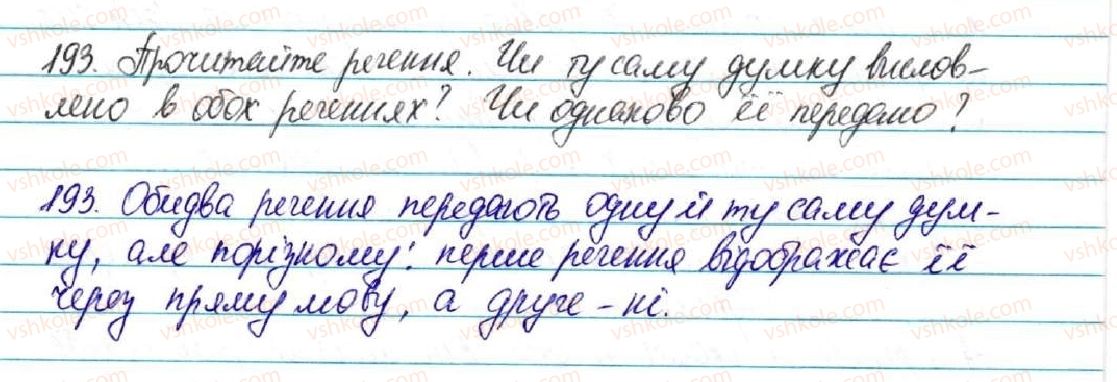 193. Прочитайте речення. Чи ту саму думку вислов-
лено в обох реченнях? Чи однаково її передано?
193. Обидва речення передають одну й ту саму дум-
ку, але порізному: перше речення відображає її
через пряму мову, а друге - ні.